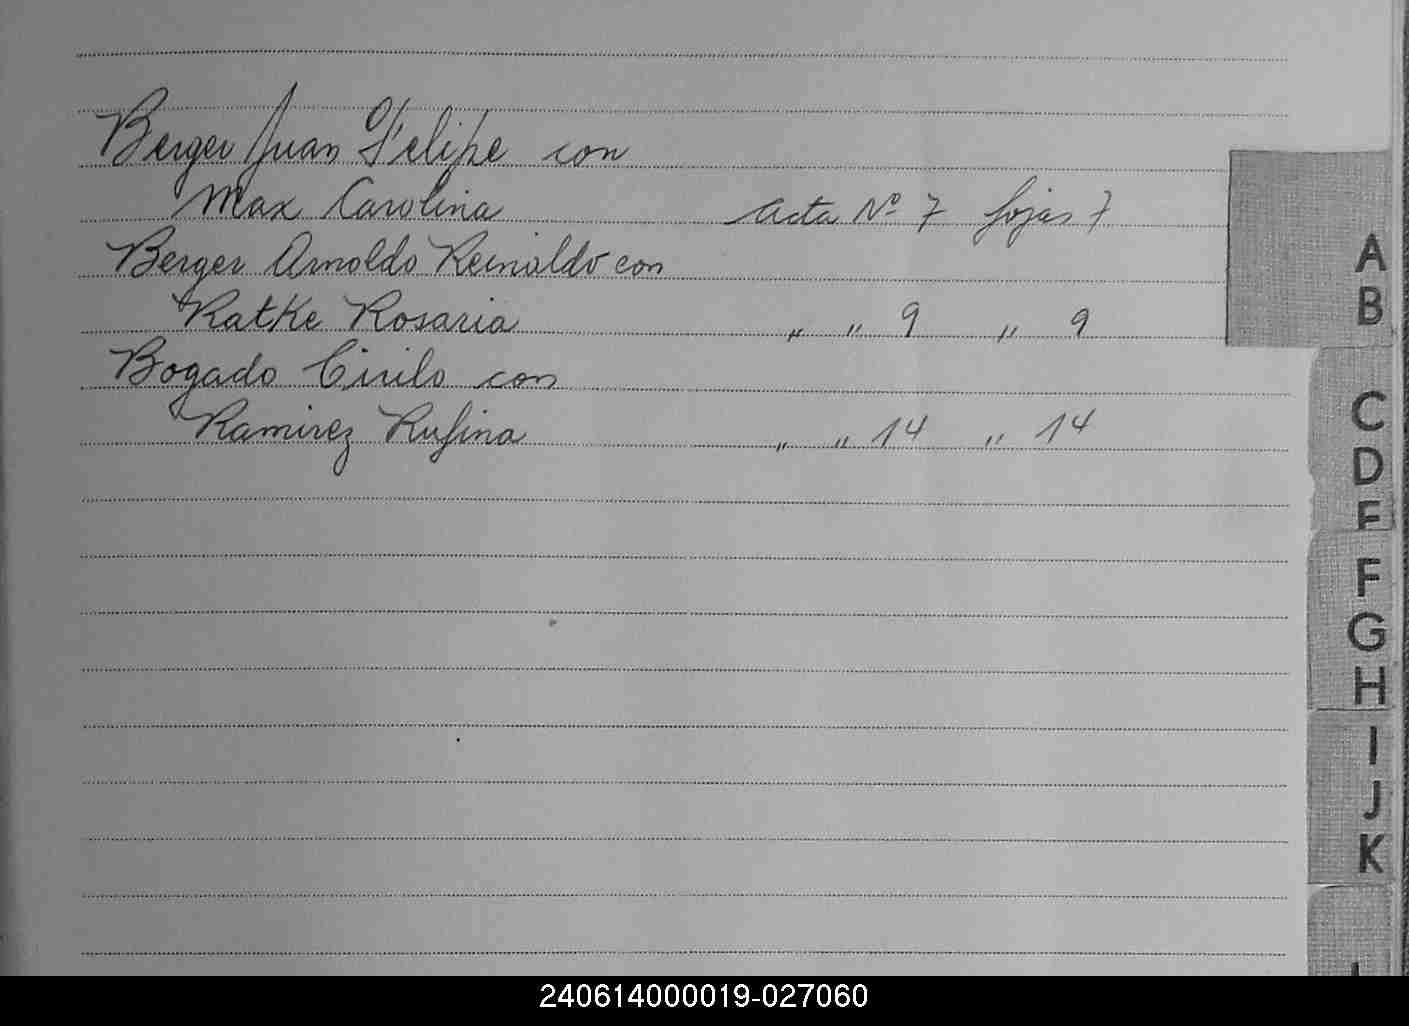 Berger Juan Felipe con
Max Carolina Acta Nº 7 fojas 7
Berger Arnoldo Reinaldo con
Ratke Rosaria " " 9 " 9
Bogado Cirilo con
Ramirez Rufina " " 14 " 14
A
B
C
D
E
F
G
H
I
J
K
L
240614000019-027060